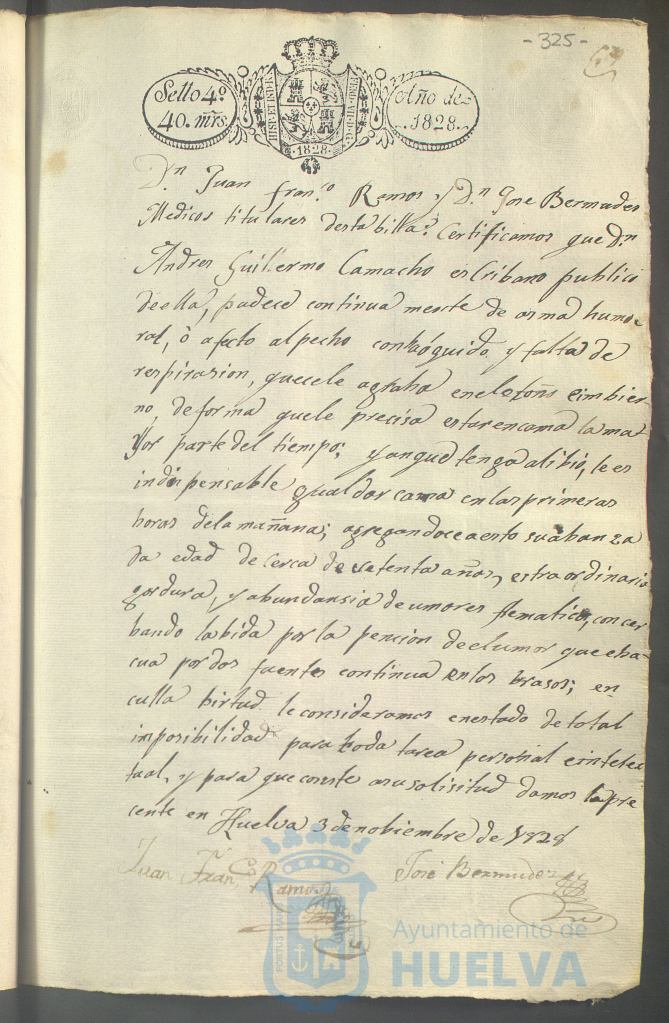 -325-
Sello 4º
40. mrs.
HISP. ET IND. R.
1828
Año de
1828.
Dn Juan Franco Ramos y Dn Jose Bermudes
Medicos titulares desta billa: Certificamos que Dn
Andres Guillermo Camacho escribano publico
de ella, padece continua mente de asma humo
ral, ò afecto al pecho con haóguido, y falta de
respirasion, quecele agraba enel otoño eimbier
no, de forma quele precisa estar encama la ma
yor parte del tiempo; yanque tenga alibio, le es
indispensable gualdar cama en las primeras
horas dela mañana; agregandocea esto su abanza
da edad de cerca de setenta años, estraordinaria
gordura, y abundansia de umores flematico, concer
bando la bida por la pencion de elumor que eba
cua por dos fuentes continua en los brasos; en
culla birtud le consideramos en estado de total
imposibilidad para toda tarea personal eintelec
tual, y para que conste asu solisitud damos la pre
cente en Huelva 3 de nobiembre de 1828
Juan Franco Ramos
José Bermudez
PORTUS MARIS
Ayuntamiento de
HUELVA